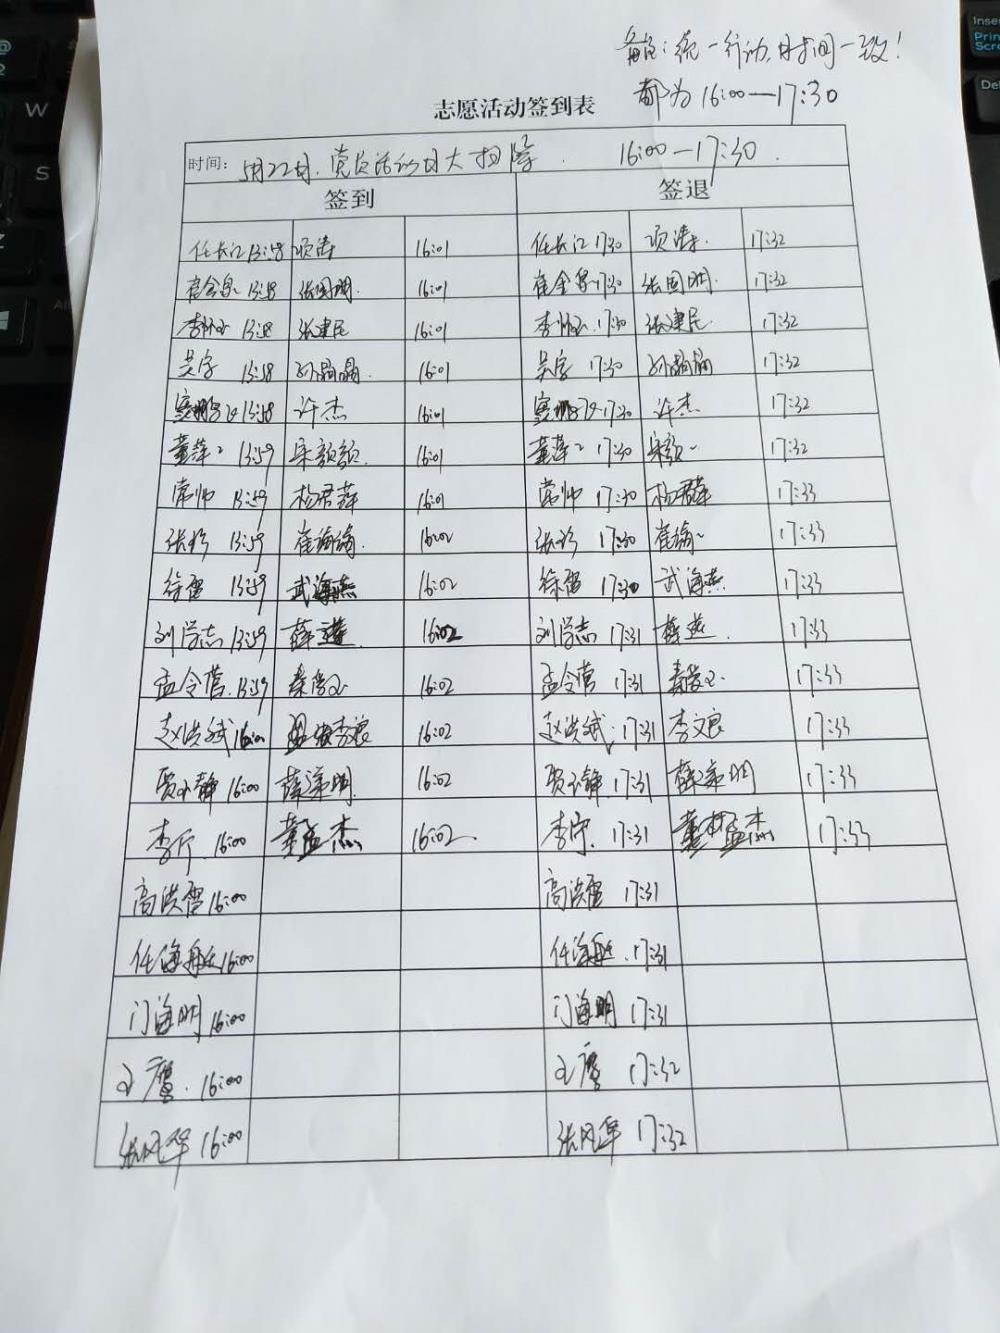 备注：统一行动，时间一致！
都为 16:00—17:30
志愿活动签到表
时间：5月22日.党员活动日大扫除. 16:00—17:30.
签到 签退
任长江 13:58 项涛 16:01 任长江 17:30 项涛. 17:32
崔金泉 13:58 张国明. 16:01 崔金泉 17:30 张国明. 17:32
李怀玉 13:58 张建民 16:01 李怀玉 17:30 张建民 17:32
吴宇 13:58 孙晶晶. 16:01 吴宇 17:30 孙晶晶 17:32
13:58 许杰 16:01 17:30 许杰 17:32
董萍 13:59 宋颖颖. 16:01 董萍 17:30 宋颖 17:32
常帅 13:59 杨君萍 16:01 常帅 17:30 杨君萍 17:33
张珍 13:59 崔瑜瑜. 16:02 张珍 17:30 崔瑜 17:33
徐雷 13:59 武海燕 16:02 徐雷 17:30 武海燕 17:33
刘学志 13:59 薛 16:02 刘学志 17:31 薛 17:33
孟令营. 13:59 秦爱玉 16:02 孟令营 17:31 秦爱玉. 17:33
赵洪斌 16:00 李文良 16:02 赵洪斌. 17:31 李文良 17:33
贾小静 16:00 薛 明. 16:02 贾小静. 17:31 薛 明 17:33
李 16:00 董孟杰 16:02 李 17:31 董孟杰 17:33
高洪雷 16:00 高洪雷 17:31
任海 16:00 任海 17:31
门海明 16:00 门海明 17:31
鹰. 16:00 鹰 17:32
张风军 16:00 张风军 17:32
Print
Scr
Del
W
S
Z
2